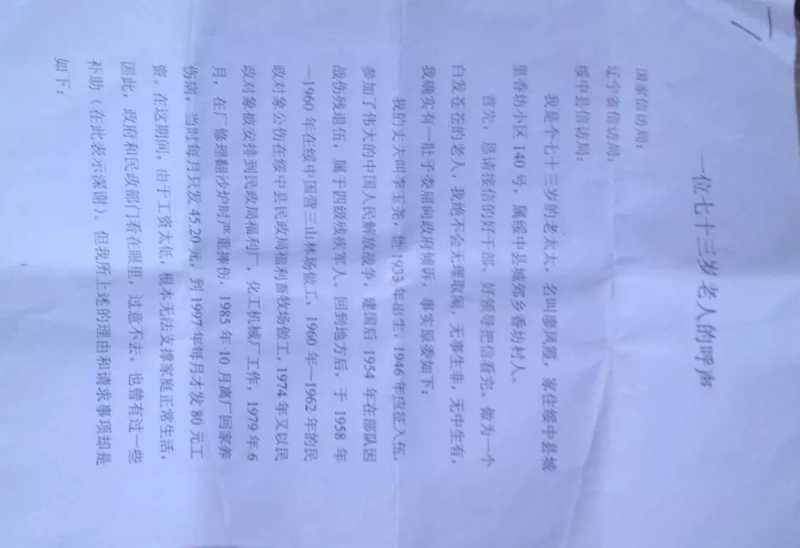 一位七十三岁老人的呼声
国家信访局：
辽宁省信访局：
绥中县信访局：
我是个七十三岁的老太太，名叫廖凤霞，家住绥中县城
里香坊小区140号，属绥中县城郊乡香坊村人。
首先，恳请接信的好干部、好领导把信看完。做为一个
白发苍苍的老人，我绝不会无理取闹，无事生非，无中生有，
我确实有一肚子委屈向政府倾诉，事实原委如下：
我的丈夫叫李玉尧，他1933年出生，1946年应征入伍，
参加了伟大的中国人民解放战争，建国后1954年在部队因
战伤残退伍，属于四级残疾军人。回到地方后，于1958年
—1960年在绥中国营三山林场做工，1960年—1962年的民
政对象公伤在绥中县民政局福利畜牧场做工，1974年又以民
政对象被安排到民政局福利厂，化工机械厂工作，1979年6
月，在厂修理翻沙炉时严重摔伤，1985年10月离厂回家养
伤病，当时每月只发45.20元，到1997年每月才发80元工
资。在这期间，由于工资太低，根本无法支撑家庭正常生活，
因此，政府和民政部门看在眼里，过意不去，也曾有过一些
补助（在此表示深谢）。但我所上述的理由和请求事项却是
如下：